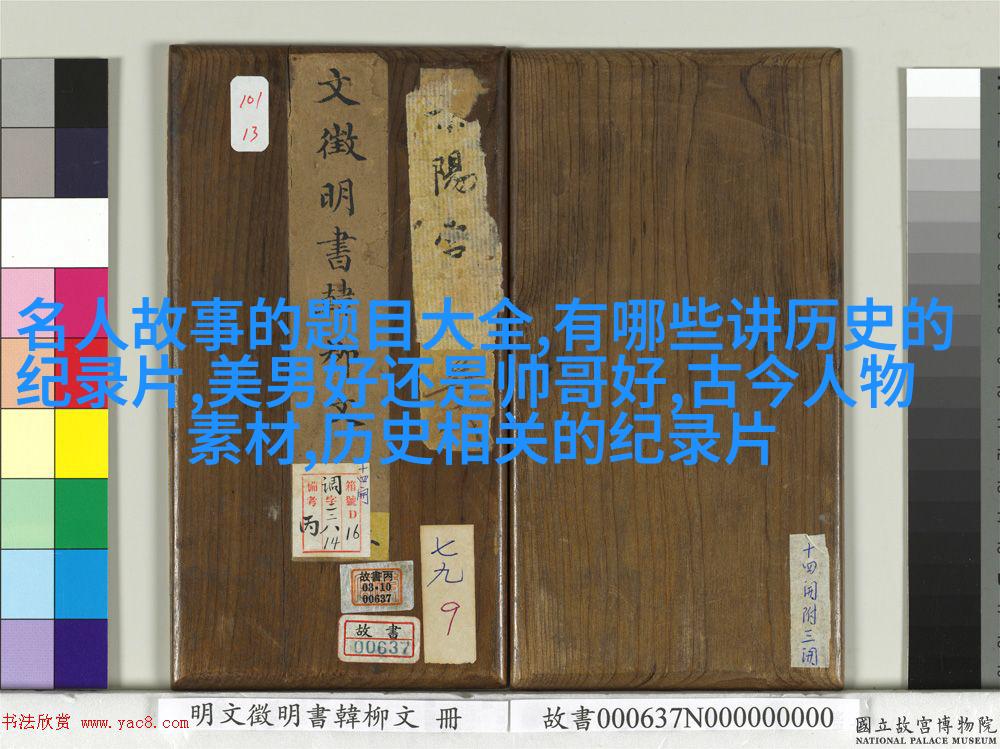 名人故事的题目大全,有哪些讲历史的
纪录片,美男好还是帅哥好,古今人物
素材,历史相关的纪录片
101
13
文徵明書韓柳文
陽宮
十四開
備考
調字三八14
箱號D16
丙
故書丙
03·10
00637
故書
00637
七九
9
十四開附三開
明文徵明書韓柳文 冊
故書000637N000000000
國立故宮博物院
NATIONAL PALACE MUSEUM
书法欣赏 www.yac8.com